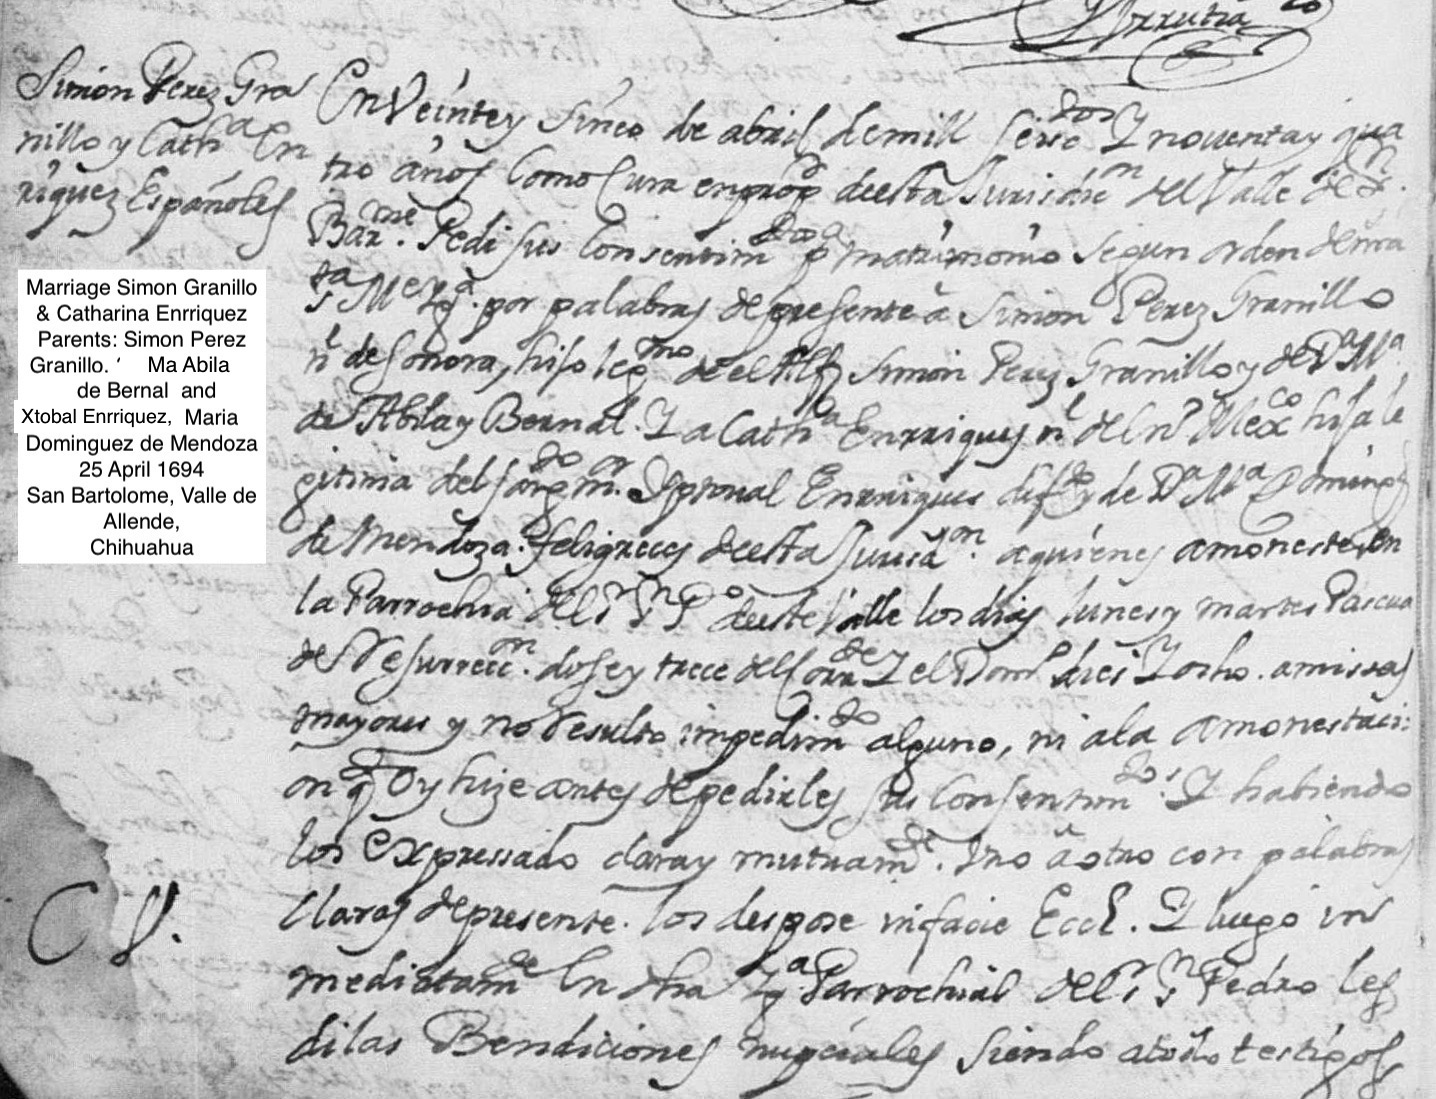 Urrutia
Simon Perez Gra
nillo y Cath.a En
riquez Españoles
Marriage Simon Granillo
& Catharina Enrriquez
Parents: Simon Perez
Granillo. ‘ Ma Abila
de Bernal and
Xtobal Enrriquez, Maria
Dominguez de Mendoza
25 April 1694
San Bartolome, Valle de
Allende,
Chihuahua
En Veinte y sinco de abril de mill seisc.dos Y noventa y qua
tro años Como Cura en prop.d de esta Jurisdic.on del Valle de S.n
Bar.me Pedi sus Consentim.dos p.a matrimonio segun orden de nra
s.ta M.e Yg.a por palabras de presente â Simon Perez Granillo
n.l de sonora, hijo leg.mo de el Alf.z Simon Perez Granillo y de D.a M.a
de Abila y Bernal. Y a Cath.a Enrriques n.l del n.o Mex.co hija le
gitima del sarg.do m.or Xptoual Enrriques dif.do y de D.a M.a Doming.z
de Mendoza. feligreces de esta Jurisd.on. a quienes amoneste, en
la Parrochia del S.r S.n P.o de este Valle los dias lunes y martes Pascua
de Resurrecc.on. dose y trece del Corr.de Y el Dom.o dies Y ocho. a missas
mayores y no Resulto impedim.do alguno, ni a la amonestaci:
on q Oy hize antes de pedirles sus Consentim.dos. Y habiendo
los Expressado clara y mutuam.de. Vno â otro con palabras
Claras de presente. los despose in facie Eccl. Y luego in
mediatam.de En dha Yg.a Parrochial del S.r S.n Pedro les
di las Bendiciones nupciales siendo a todo testigos
C V.